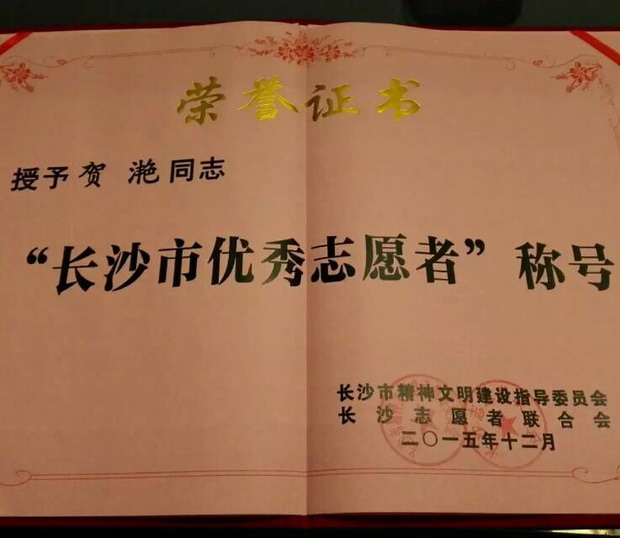 荣誉证书
授予贺 滟同志
“长沙市优秀志愿者”称号
长沙市精神文明建设指导委员会
长沙志愿者联合会
二〇一五年十二月